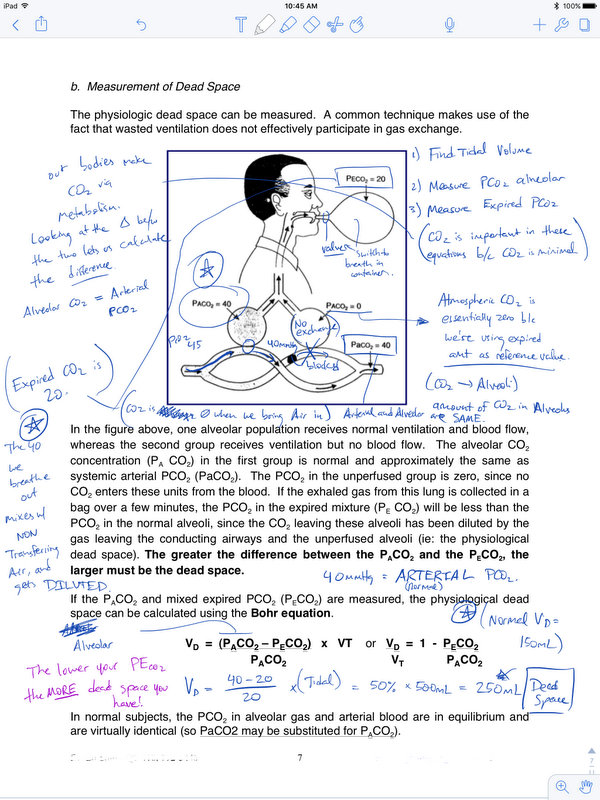 iPad
10:45 AM
100%
b. Measurement of Dead Space
The physiologic dead space can be measured. A common technique makes use of the
fact that wasted ventilation does not effectively participate in gas exchange.
our bodies make
CO2 via
metabolism.
Looking at the Δ b/w
the two lets us calculate
the difference.
Alveolar CO2 = Arterial
PCO2
PECO2 = 20
valves
switch to
breath in
container.
PACO2 = 40
PACO2 = 0
No
exchange
PaCO2 = 40
40mmHg
blocked
45
1) Find Tidal Volume
2) Measure PCO2 alveolar
3) Measure Expired PCO2
(CO2 is important in these
equations b/c CO2 is minimal)
Atmospheric CO2 is
essentially zero b/c
we're using expired
amt as reference value.
(CO2 → Alveoli)
(Expired CO2 is
20.)
(CO2 is 0 when we bring Air in)
Arterial and Alveolar amount of CO2 in Alveolus
are SAME.
In the figure above, one alveolar population receives normal ventilation and blood flow,
whereas the second group receives ventilation but no blood flow. The alveolar CO2
concentration (PA CO2) in the first group is normal and approximately the same as
systemic arterial PCO2 (PaCO2). The PCO2 in the unperfused group is zero, since no
CO2 enters these units from the blood. If the exhaled gas from this lung is collected in a
bag over a few minutes, the PCO2 in the expired mixture (PE CO2) will be less than the
PCO2 in the normal alveoli, since the CO2 leaving these alveoli has been diluted by the
gas leaving the conducting airways and the unperfused alveoli (ie: the physiological
dead space). The greater the difference between the PACO2 and the PECO2, the
larger must be the dead space.
The 40
we
breathe
out
mixes w/
NON
Transferring
Air, and
gets DILUTED.
40mmHg = ARTERIAL PCO2.
(normal)
If the PACO2 and mixed expired PCO2 (PECO2) are measured, the physiological dead
space can be calculated using the Bohr equation.
(Normal VD =
150mL)
Alveolar
VD = (PACO2 – PECO2) x VT or VD = 1 - PECO2
PACO2 VT PACO2
The lower your PECO2
the MORE dead space you
have!
VD = 40-20 x (Tidal) = 50% x 500mL = 250mL Dead
20 Space
In normal subjects, the PCO2 in alveolar gas and arterial blood are in equilibrium and
are virtually identical (so PaCO2 may be substituted for PACO2).
7